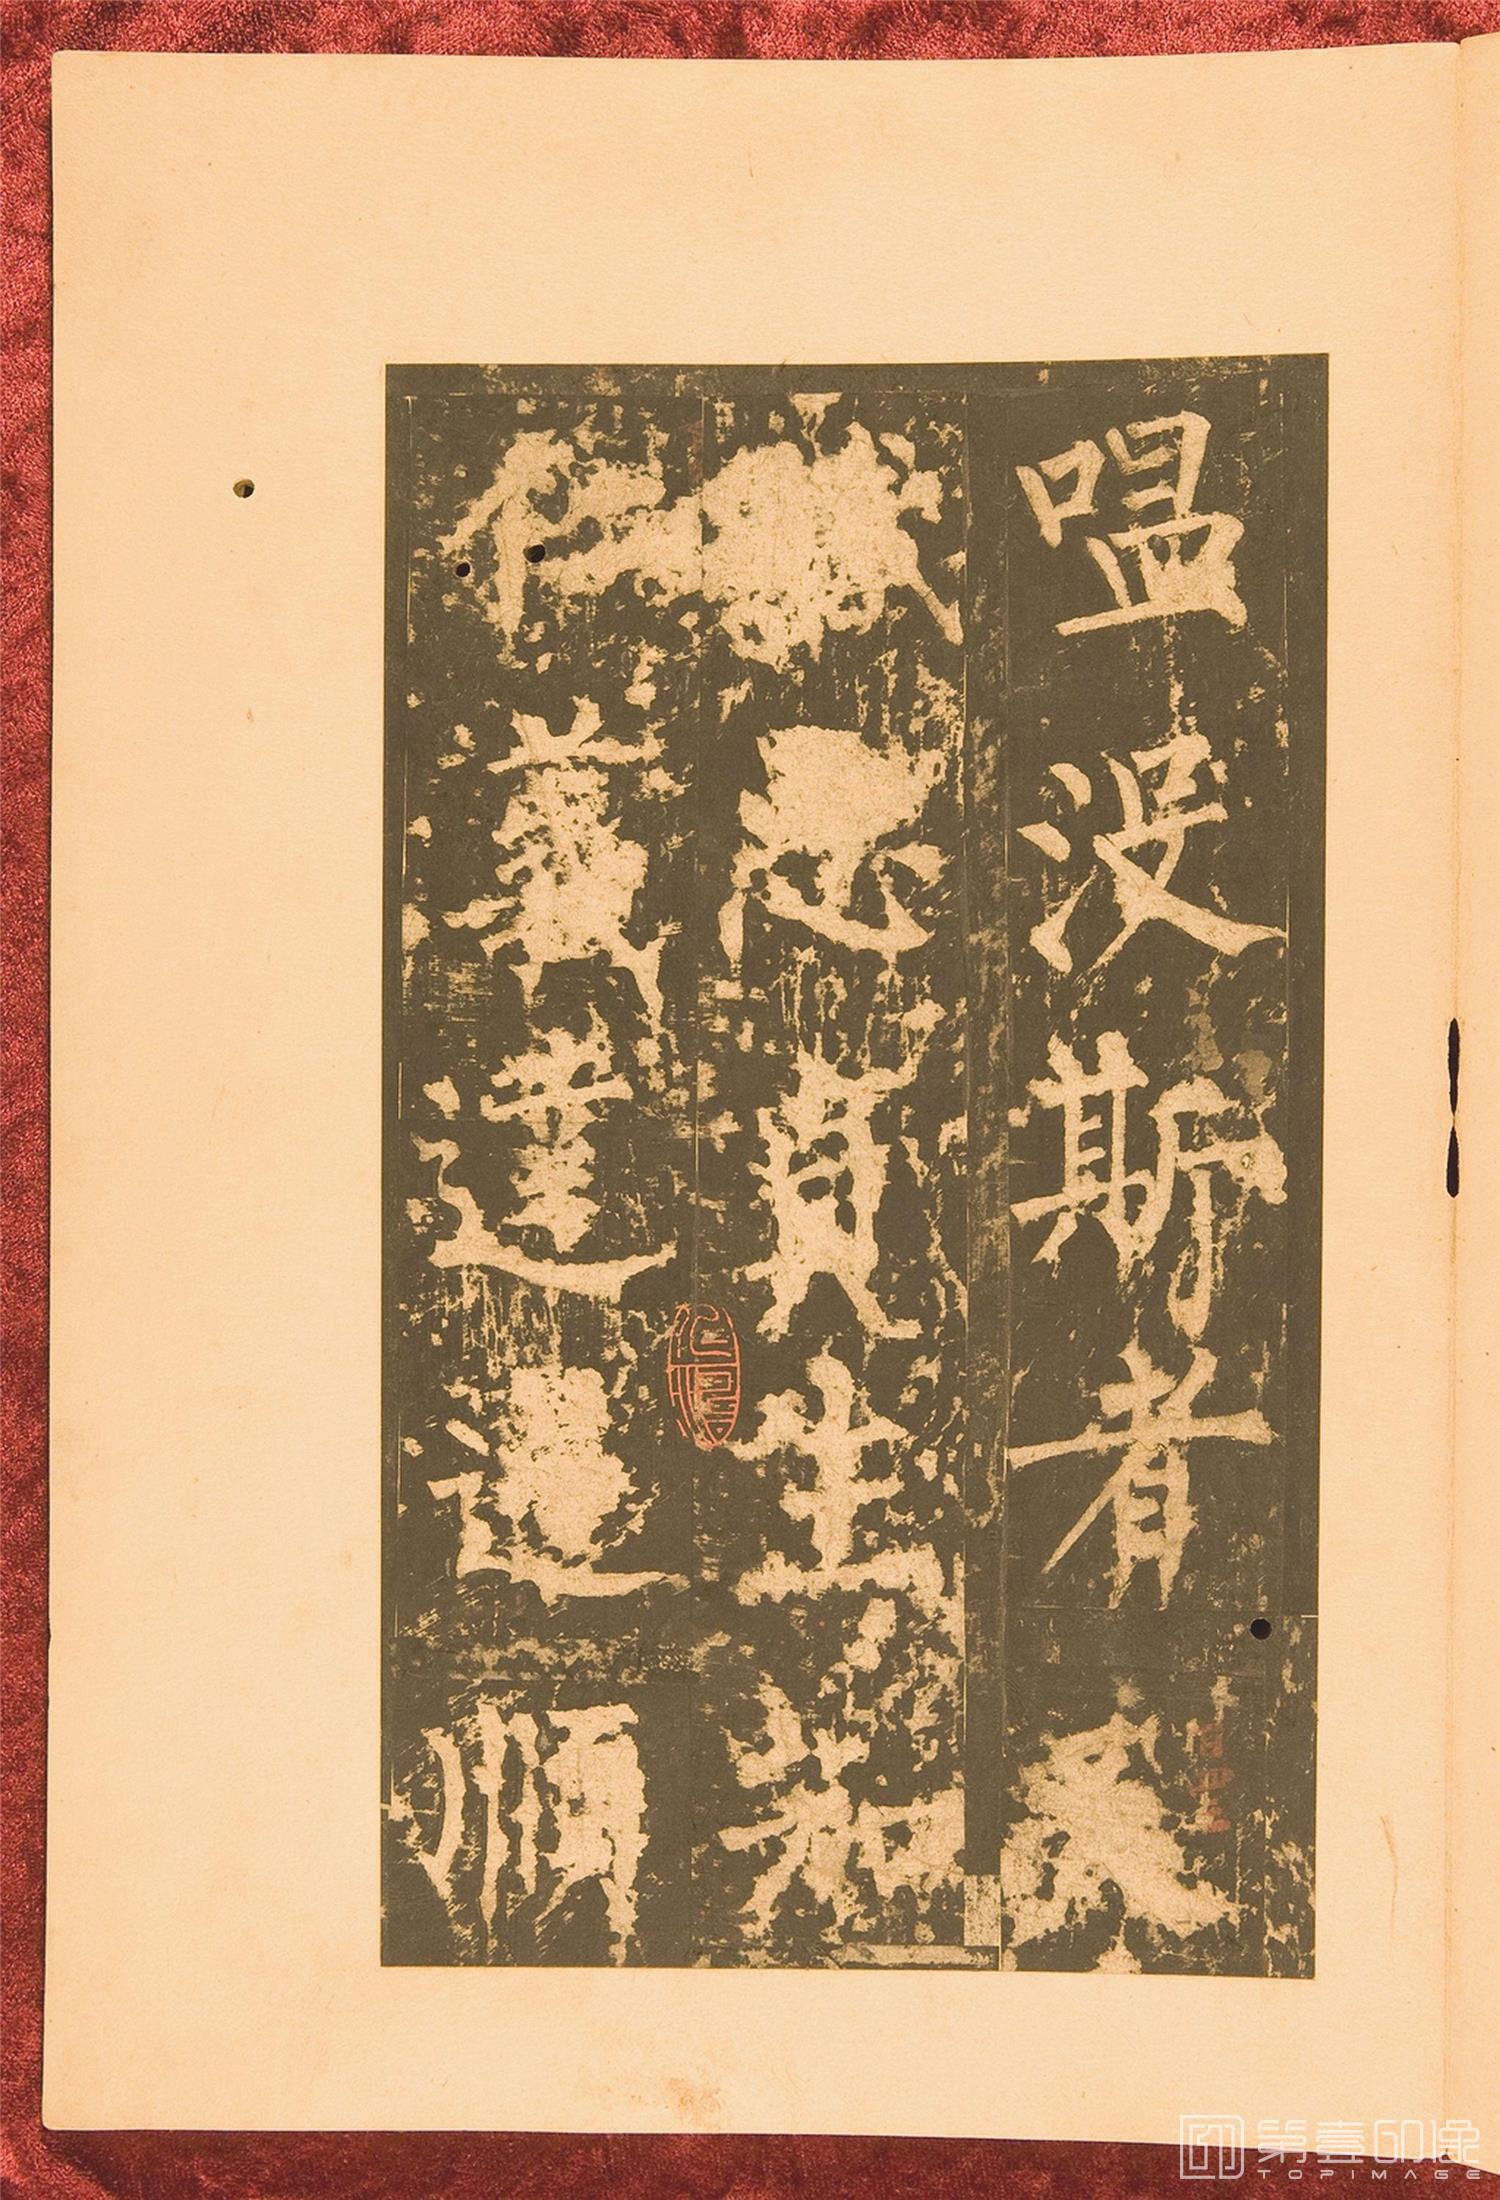 嗢沒斯者
忠貞生知
仁義達順
第壹印像
TOPIMAGE